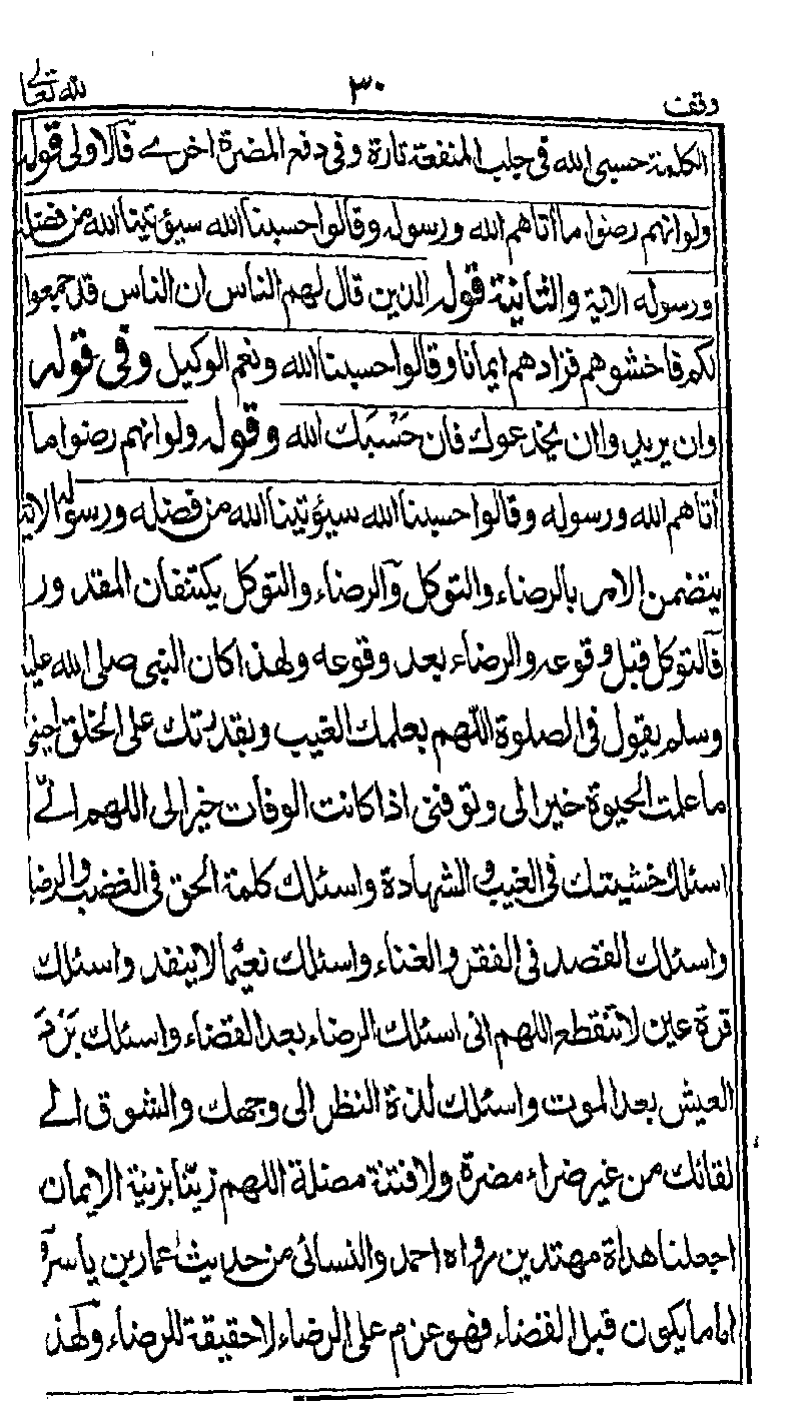 وقف ٣٠ لله تعالى
الكلمة حسبى الله فى جلب المنفعة تارة وفى دفع المضرة اخرے فالاولى قوله
ولو انهم رضوا ما أتاهم الله ورسوله وقالوا حسبنا الله سيؤتينا الله من فضله
ورسوله الاية والثانية قوله الذين قال لهم الناس ان الناس قد جمعوا
لكم فاخشوهم فزادهم ايمانا وقالوا حسبنا الله ونعم الوكيل وفى قوله
وان يريدوا ان يخدعوك فان حَسْبَك الله وقوله ولو انهم رضوا ما
أتاهم الله ورسوله وقالوا حسبنا الله سيؤتينا الله من فضله ورسوله الاية
يتضمن الامر بالرضاء والتوكل والرضاء والتوكل يكتنفان المقدور
فالتوكل قبل وقوعه والرضاء بعد وقوعه ولهذا كان النبى صلى الله عليه
وسلم يقول فى الصلوة اللّهم بعلمك الغيب وبقدرتك على الخلق احينى
ما علمت الحيوة خيرا لى وتوفنى اذا كانت الوفات خيرا لى اللهم انے
اسئلك خشيتك فى الغيب والشهادة واسئلك كلمة الحق فى الغضب والرضا
واسئلك القصد فى الفقر والغناء واسئلك نعيما لا ينفد واسئلك
قرة عين لا تنقطع اللهم انى اسئلك الرضاء بعد القضاء واسئلك بَرْدَ
العيش بعد الموت واسئلك لذة النظر الى وجهك والشوق الے
لقائك من غير ضراء مضرة ولا فتنة مضلة اللهم زينا بزينة الايمان
اجعلنا هداة مهتدين رواه احمد والنسائى من حديث عمار بن ياسر
اما ما يكون قبل القضاء فهو عزم على الرضاء لا حقيقة للرضاء ولهذ